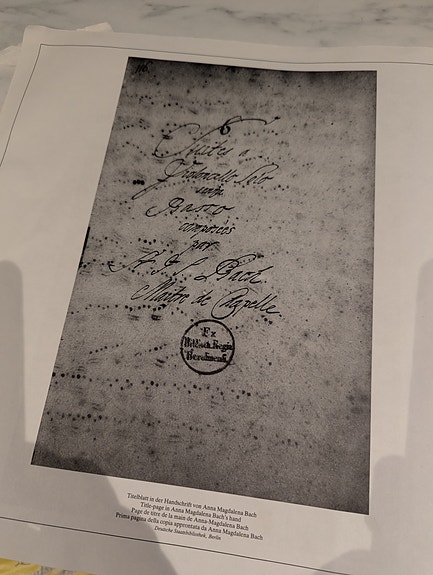 6
Suites a
Violoncello Solo
senza
Basso
composées
par
J. S. Bach.
Maitre de Capelle
Ex
Biblioth. Regia
Berolinensi
Titelblatt in der Handschrift von Anna Magdalena Bach
Title-page in Anna Magdalena Bach's hand
Page de titre de la main de Anna-Magdalena Bach
Prima pagina della copia approntata da Anna Magdalena Bach
Deutsche Staatsbibliothek, Berlin